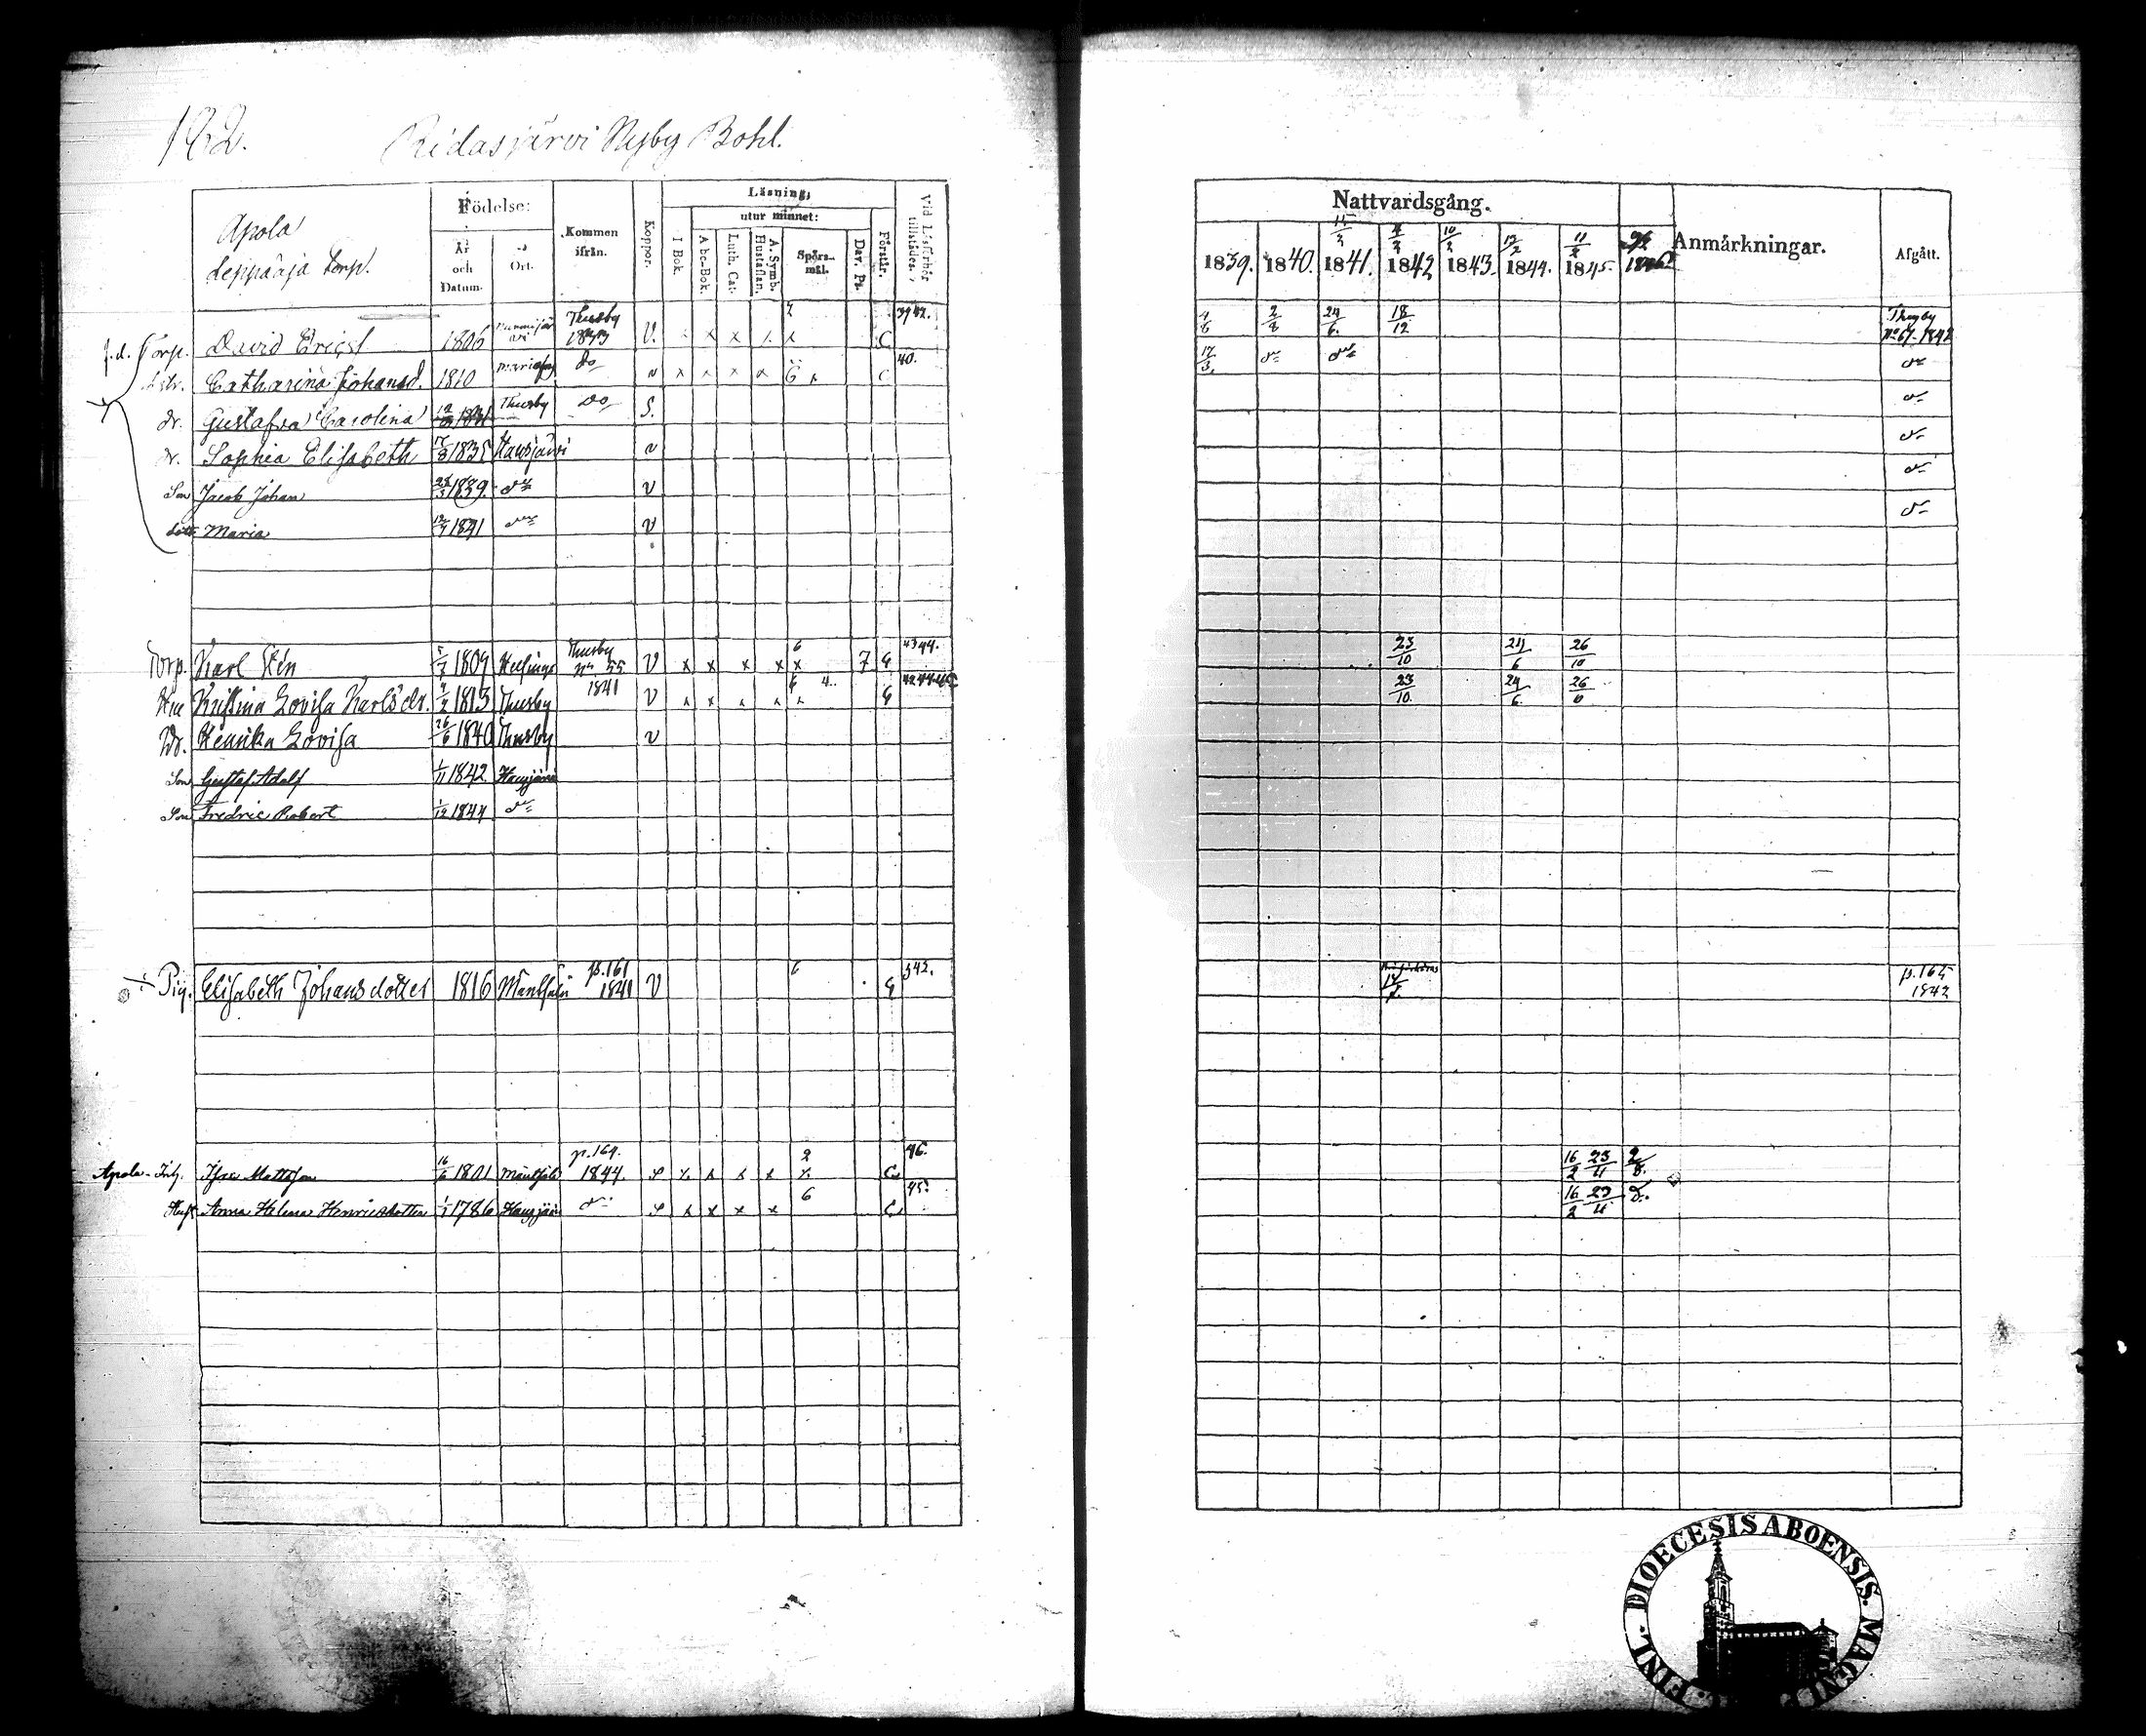 162. Ridasjärvi Nyby Bohl.
Apola
Leppäoja Torp.
Födelse:
År och Datum.
Ort.
Kommen ifrån.
Koppor.
Läsning,
I Bok.
utur minnet:
Abc-Bok.
Luth. Cat.
A. Symb. Hustaflan.
Spörs-mål.
Dav. Ps.
Förstår.
Vid Läsförhör tillstädes.
Nattvardsgång.
1839. 1840. 1841. 1842 1843. 1844. 1845. 1846.
11/2 10/2 11/2
Anmärkningar.
Afgått.
f.d. Torp. David Ericsl 1806 Thusby 1833 V. x x x x C 39 42. 2/8 24/6. 18/12 Thusby No 67. 1842
Catharina Johansd. 1810 do v x x x x 6 x C 40. 17/3. do do do
dr. Gustafva Carolina 1831 Thusby do S. do
dr. Sophia Elisabeth 1835 Hausjärvi v do
Son Jacob Johan 1839. do V do
dott. Maria 1841 do V do
Torp. Karl Sten 5/7 1809 Helsinge Thusby No 55 1841 V x x x x x 6 7 G 43 44. 23/10 24/6 26/10
Hu Kristina Lovisa Karlsdr. 1813 Thusby V x x x x x 6 4. G 42 44 45 23/10. 24/6. 26/10
Dr. Henrika Lovisa 26/6 1840 Thusby V
Son Gustaf Adolf 1/11 1842 Hausjärvi
Son Fredric Robert 1/12 1844 do
Pig. Elisabeth Johansdotter 1816 Mäntsälä p. 161 1841 V 6 G 42. p. 165 1842
Apola - Inh. Isac Mattsson 16/6 1801 Mäntsälä p. 164. 1844. x x x x 2 x C. 46. 16/2 23/11 2/8.
Hust. Anna Helena Henricsdotter 1/1 1786 Hausjärvi do x x x x 6 C. 45. 16/2 23/11 D.
FINL. DIOECESIS ABOENSIS. MAGNI